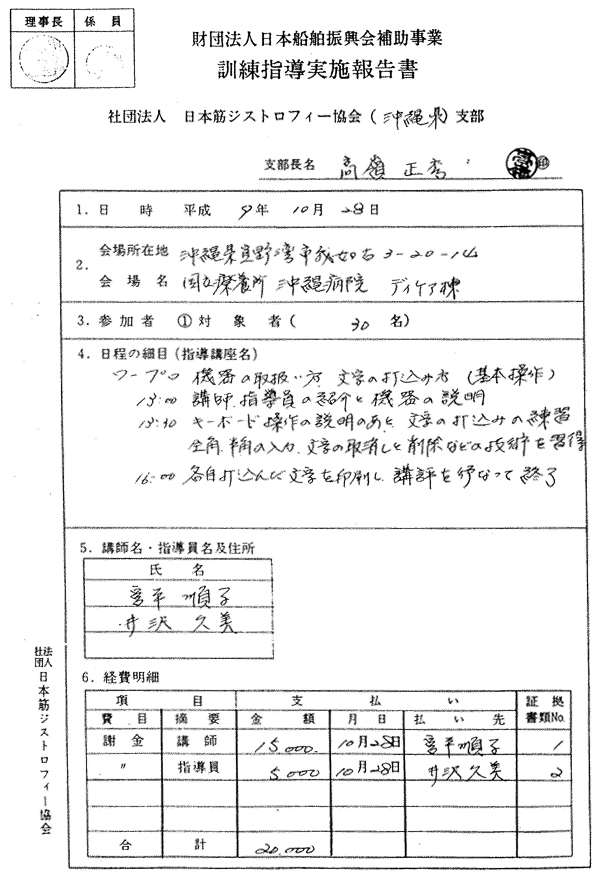 理事長 係員
財団法人日本船舶振興会補助事業
訓練指導実施報告書
社団法人 日本筋ジストロフィー協会(沖縄県)支部
支部長名 高嶺 正秀 印
1.日 時 平成 9年 10月 28日
2.会場所在地 沖縄県宜野湾市我如古3-20-14
会場名 国立療養所 沖縄病院 ディケア棟
3.参加者 ①対象者( 30名)
4.日程の細目(指導講座名)
ワープロ 機器の取扱い方 文字の打込み方 (基本操作)
13:00 講師.指導員の紹介と機器の説明
13:30 キーボード操作の説明のあと 文字の打込みの練習
全角.半角の入力.文字の取消しと削除などの技術を習得
16:00 各自打込んだ文字を印刷し.講評を行なって終了
5.講師名・指導員名及住所
氏名
宮平 順子
井沢 久美
6.経費明細
項目 支払い 証拠書類No.
費目 摘要 金額 月日 払い先
謝金 講師 15,000. 10月28日 宮平順子 1
〃 指導員 5,000 10月28日 井沢久美 2
合計 20,000
社団法人 日本筋ジストロフィー協会